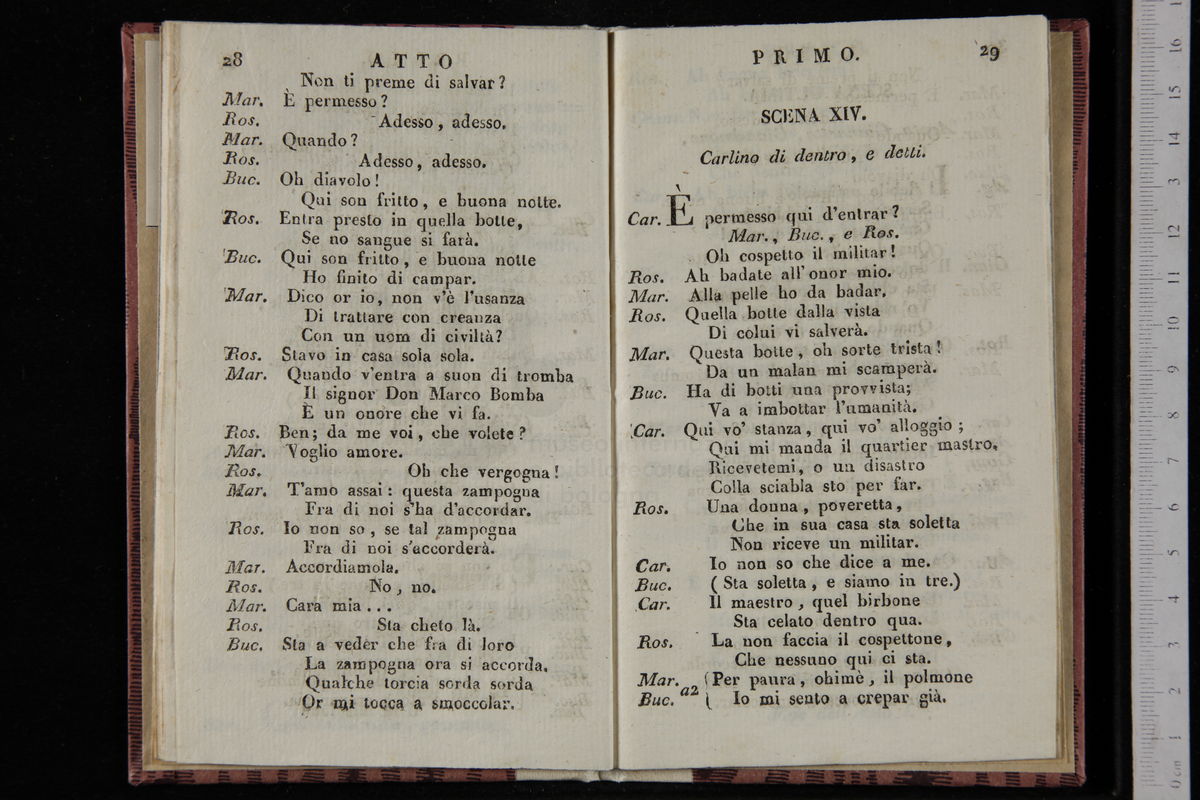 28 ATTO
Non ti preme di salvar?
Mar. È permesso?
Ros. Adesso, adesso.
Mar. Quando?
Ros. Adesso, adesso.
Buc. Oh diavolo!
Qui son fritto, e buona notte.
Ros. Entra presto in quella botte,
Se no sangue si farà.
Buc. Qui son fritto, e buona notte
Ho finito di campar.
Mar. Dico or io, non v'è l'usanza
Di trattare con creanza
Con un uom di civiltà?
Ros. Stavo in casa sola sola.
Mar. Quando v'entra a suon di tromba
Il signor Don Marco Bomba
È un onore che vi fa.
Ros. Ben; da me voi, che volete?
Mar. Voglio amore.
Ros. Oh che vergogna!
Mar. T'amo assai: questa zampogna
Fra di noi s'ha d'accordar.
Ros. Io non so, se tal zampogna
Fra di noi s'accorderà.
Mar. Accordiamola.
Ros. No, no.
Mar. Cara mia...
Ros. Sta cheto là.
Buc. Sta a veder che fra di loro
La zampogna ora si accorda,
Qualche torcia sorda sorda
Or mi tocca a smoccolar.
PRIMO. 29
SCENA XIV.
Carlino di dentro, e detti.
Car. È permesso qui d'entrar?
Mar., Buc., e Ros.
Oh cospetto il militar!
Ros. Ah badate all'onor mio.
Mar. Alla pelle ho da badar.
Ros. Quella botte dalla vista
Di colui vi salverà.
Mar. Questa botte, oh sorte trista!
Da un malan mi scamperà.
Buc. Ha di botti una provvista;
Va a imbottar l'umanità.
Car. Qui vo' stanza, qui vo' alloggio;
Qui mi manda il quartier mastro,
Ricevetemi, o un disastro
Colla sciabla sto per far.
Ros. Una donna, poveretta,
Che in sua casa sta soletta
Non riceve un militar.
Car. Io non so che dice a me.
Buc. (Sta soletta, e siamo in tre.)
Car. Il maestro, quel birbone
Sta celato dentro qua.
Ros. La non faccia il cospettone,
Che nessuno qui ci sta.
Mar. (Per paura, ohimè, il polmone
Buc. a2 ( Io mi sento a crepar già.